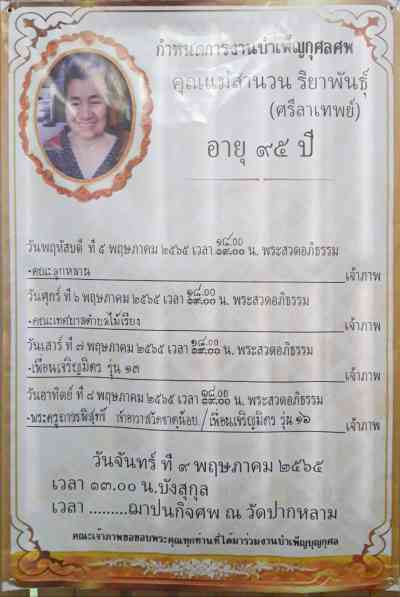 กำหนดการงานบำเพ็ญกุศลศพ
คุณแม่สำนวน ริยาพันธุ์
(ศรีลาเทพย์)
อายุ ๙๕ ปี
วันพฤหัสบดี ที่ ๕ พฤษภาคม ๒๕๖๕ เวลา ๑๙.๐๐ น. พระสวดอภิธรรม
๑๘.๐๐
-คณะลูกหลาน เจ้าภาพ
วันศุกร์ ที่ ๖ พฤษภาคม ๒๕๖๕ เวลา ๑๙.๐๐ น. พระสวดอภิธรรม
๑๘.๐๐
-คณะเทศบาลตำบลไม้เรียง เจ้าภาพ
วันเสาร์ ที่ ๗ พฤษภาคม ๒๕๖๕ เวลา ๑๙.๐๐ น. พระสวดอภิธรรม
๑๘.๐๐
-เพื่อนเจริญมิตร รุ่น ๑๓ เจ้าภาพ
วันอาทิตย์ ที่ ๘ พฤษภาคม ๒๕๖๕ เวลา ๑๙.๐๐ น. พระสวดอภิธรรม
๑๘.๐๐
เจ้าอาวาสวัดธาตุน้อย / เพื่อนเจริญมิตร รุ่น ๑๖ เจ้าภาพ
วันจันทร์ ที่ ๙ พฤษภาคม ๒๕๖๕
เวลา ๑๓.๐๐ น.บังสุกุล
เวลา .........ฌาปนกิจศพ ณ วัดปากหลาม
คณะเจ้าภาพขอขอบพระคุณทุกท่านที่ได้มาร่วมงานบำเพ็ญบุญกุศล